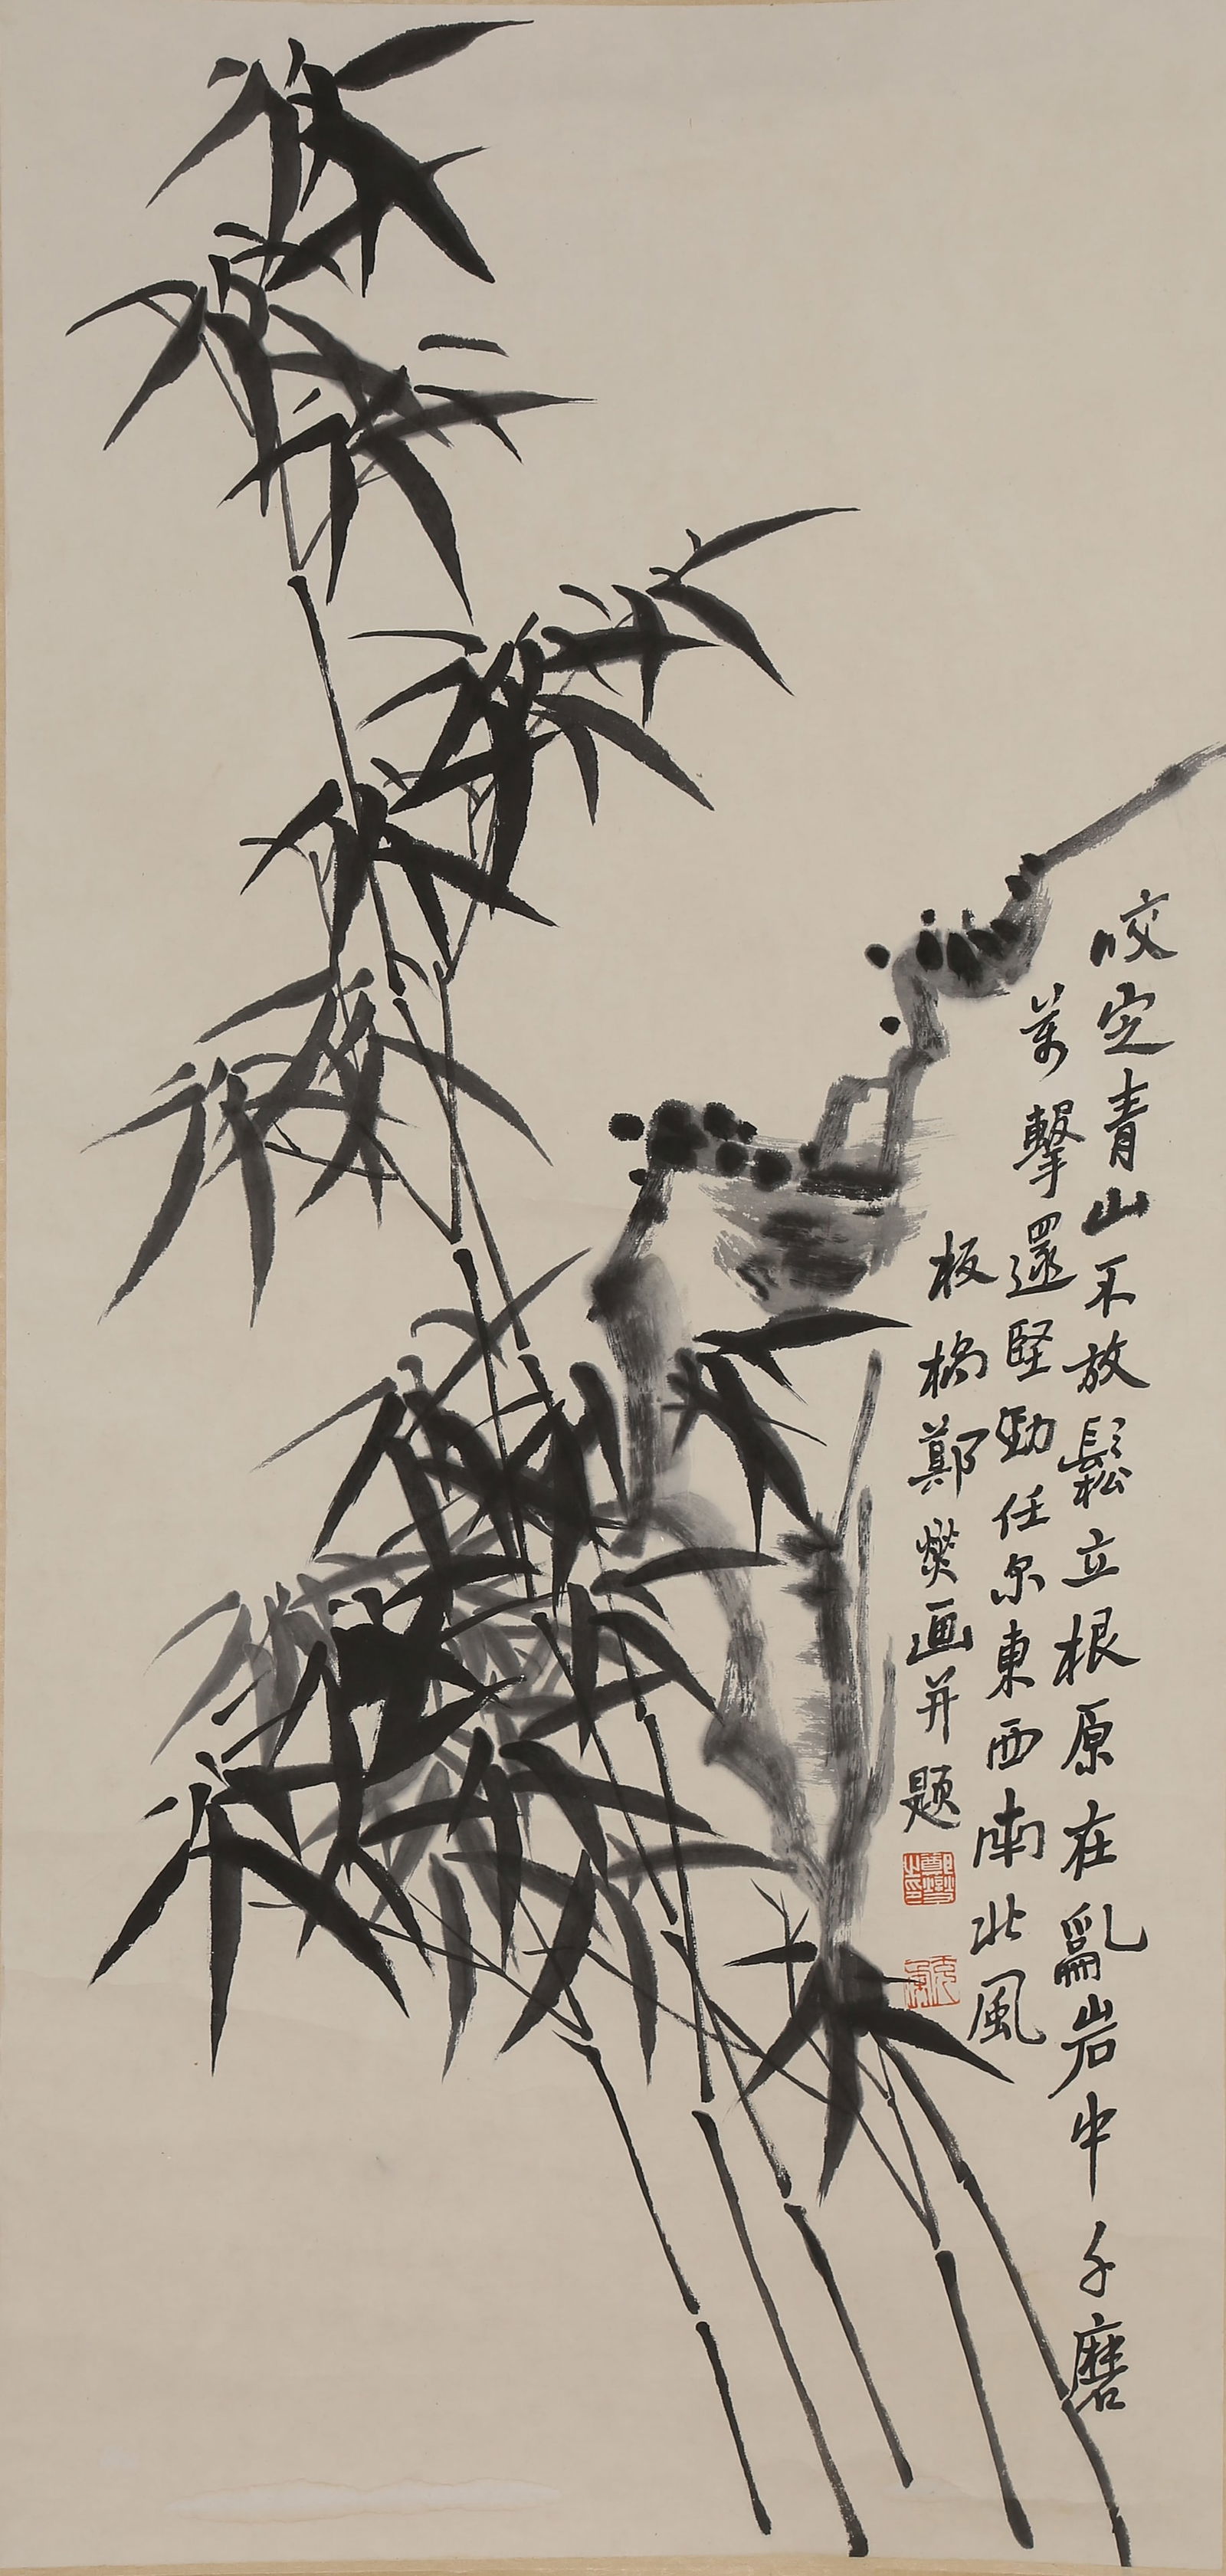 咬定青山不放鬆立根原在亂岩中千磨
萬擊還堅勁任尔東西南北風
板橋鄭燮画并題
鄭燮之印
克柔